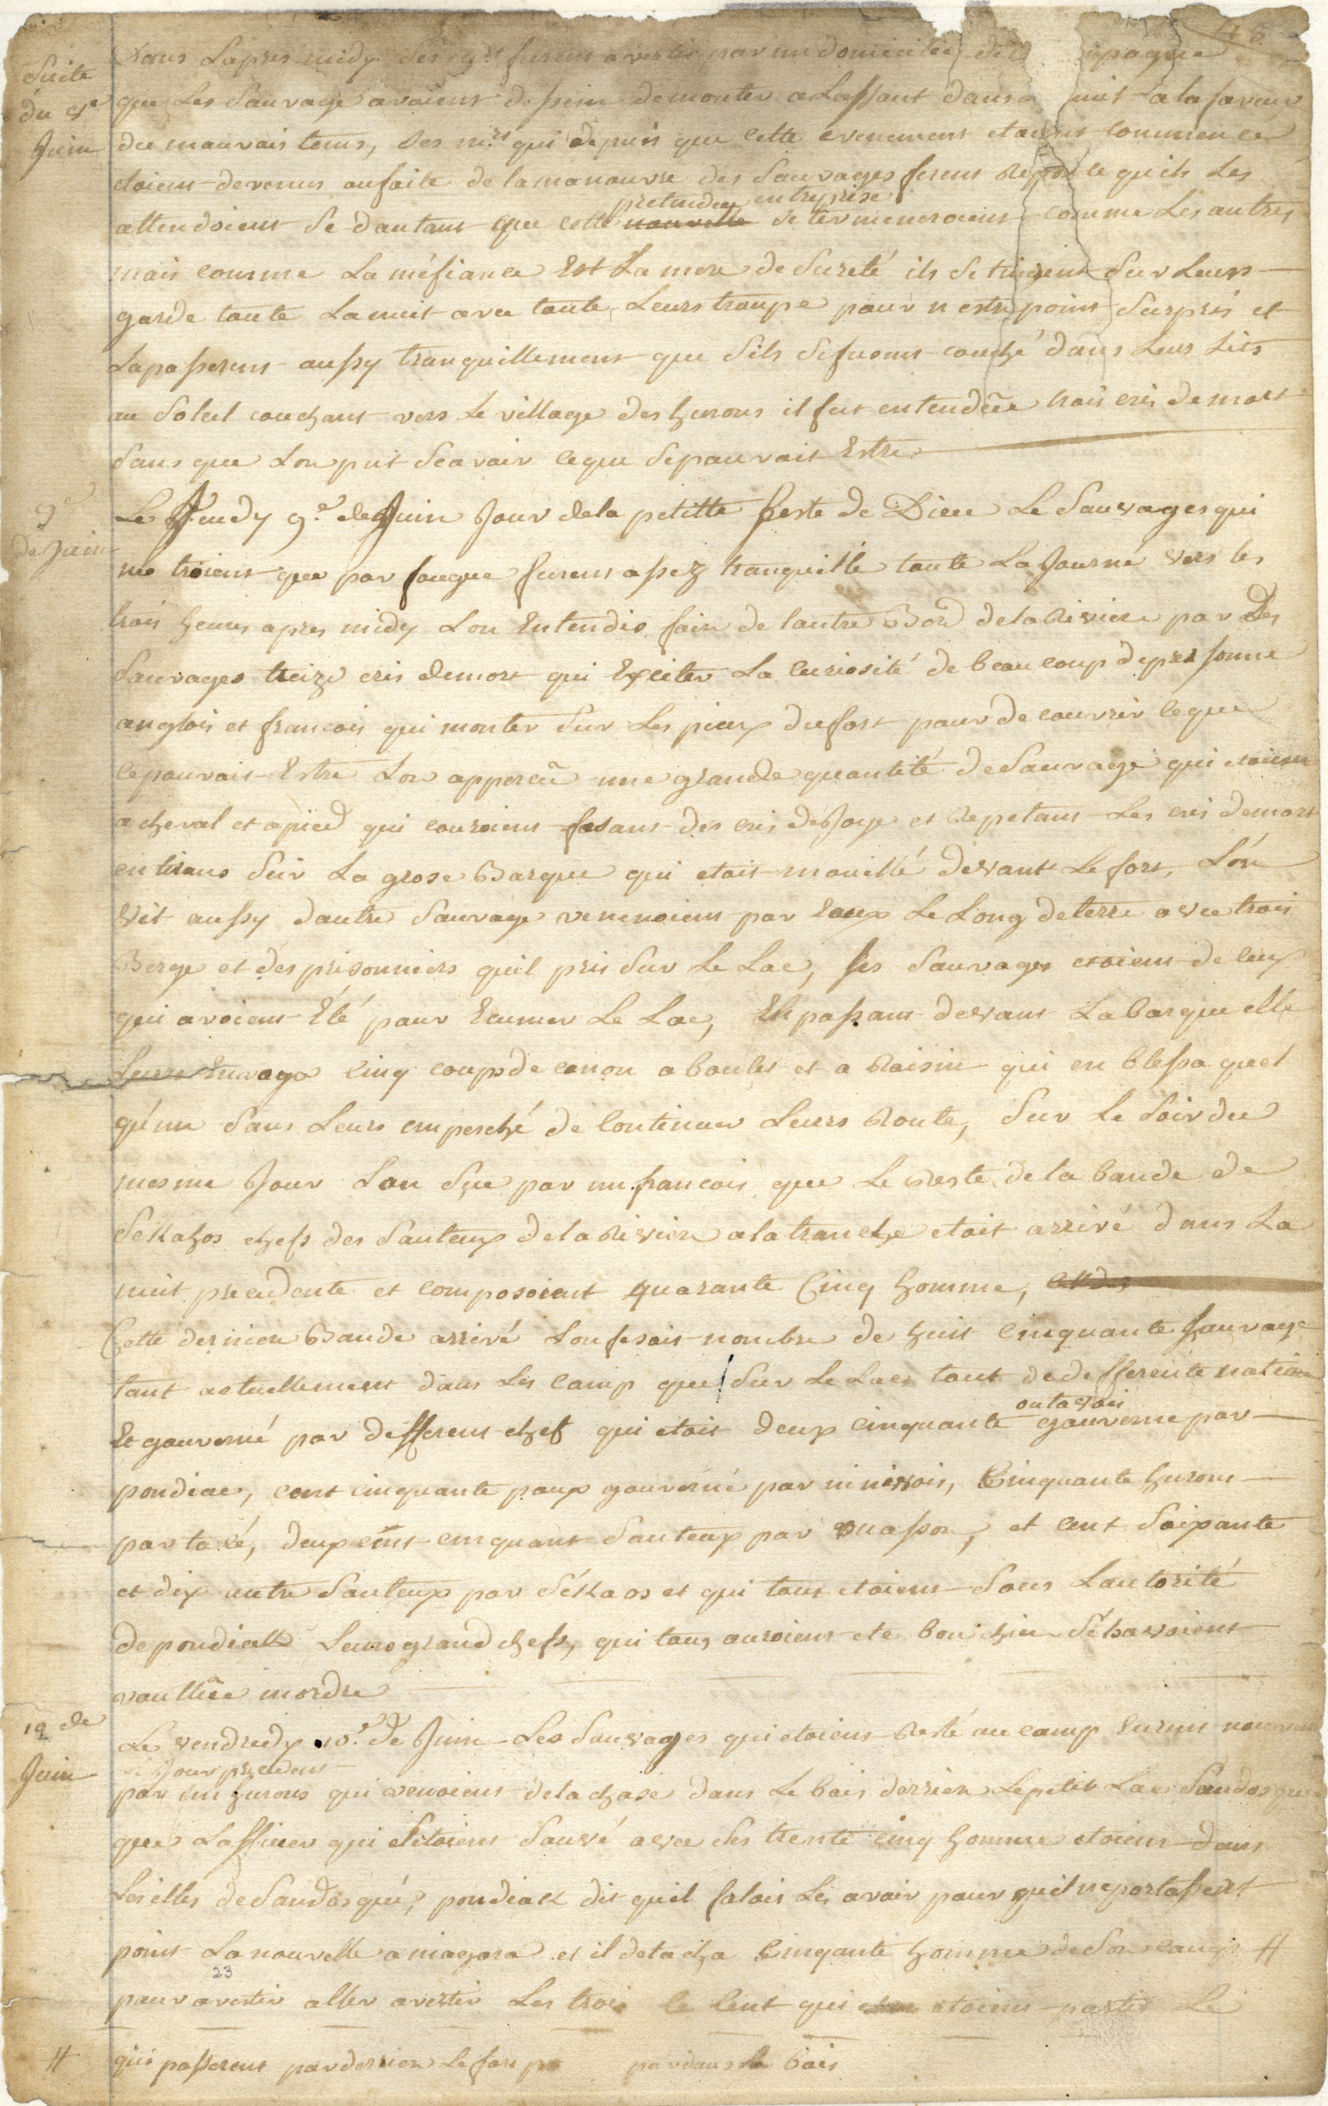 48
Suite
du 8e
Juin
Dans Lapres midy Ses mrs furent avertis par un domicilié de
que Les Sauvage avoient dessein demonter alassaut dans nuit ala faveur
du mauvais tems, Ses mrs qui depuis que cette evenement etaient commencé
etoient devenus aufaite delamanouvre des Sauvages firent reponse quils Les
pretendue entreprise
attendoient Se dautant que cette nouvelle Se termineroient comme Les autres
mais comme La méfiance Est La mere de Sureté ils Setinrent Sur Leurs
garde toute Lanuit avec toute Leurs troupe pour n estre point Surpris et
Lapasserent aussy tranquillement que Sils Sefusent couché dans Leurs Lits
au Soleil couchant vers Le village des hurons il fut entendüe trois cris demort
Sans que Lon put Scavoir ceque Sepouvoit Estre
9e
de Juin
Le Jeudy 9.e de Juin Jour dela petitte feste de Dieu Le Sauvages qui
notroient que par fougue furent assez tranquille toute La Journé vers les
trois heures apres midy Lon Entendis faire de lautre Bord dela Riviere par Des
Sauvages treize cris demort qui Exciter La curiosité de beaucoup depersonne
anglois et francois qui monter Sur Les pieux dufort pour decouvrir ceque
cepouvait Estre Lon apperçu une grande quantité de Sauvage qui etoient
acheval et apied qui couroient fesant des cris deJoye et Repetant Les cris demort
entirans Sur La grose Barque qui etait mouillé devant Lefort, Lón
Vit aussy dautre Sauvage venenoient par Eaux Le Long deterre avec trois
Berge et des prisonniers quil pris Sur Le Lac, ses Sauvages etoient de ceux
qui avoient Eté pour Ecumer Le Lac, En passant devant Labarque elle
Leurs Envoya Cinq coups de canon a boulet et a Raisin qui en blessa quel
qúun Sans Leurs empesché de Continuer Leurs Route, Sur Le Soir du
mesme Jour Lon Sçu par un francois que Le Reste de la bande de
Sékahos chefs des Sauteux dela Riviere ala tranche etait arrivé dans La
nuit precedente et composoient quarante Cinq homme,
Cette derniere Bande arrivé Lonfesoit nombre de huit Cinquante Sauvage
tant actuellement dans Les Camp que Sur Le Lac tout de defferente nation
outavois
Et gouverné par defferent chef qui etoit deux cinquante gouverné par
pondiac, cent cinquante poux gouverné par ninivois, Cinquante hurons
par také, deux cent cinquant Sauteux par Ouasson, et cent Soixante
et dix autre Sauteux par Sékaos et qui tous etoient Sous Lautorité
depondiak Leurs grand chefs, qui tous auroient eté bon chien Silsavoient
voullüe mordre
10 de
Juin
Le vendredy 10.e de Juin Les Sauvages qui etoient Resté au camp Eurent nouvelle
Le Jour precedent
par un hurons qui venoient dela chase dans Le bois derriere Lepetit Lac Sandosqué
que Lofficier qui Setoient Sauvé avec Ses trente cinq homme etoient dans
Les isles deSandosqué, pondiak dit quil faloit Les avoir pour quil neportassent
point La nouvelle aniagara et il detacha Cinqante homme deSon camp #
23
pour avertir aller avertir Les trois le Cent qui etoient partis Le
# qui passerent par derriere Lefort par dans Le bois